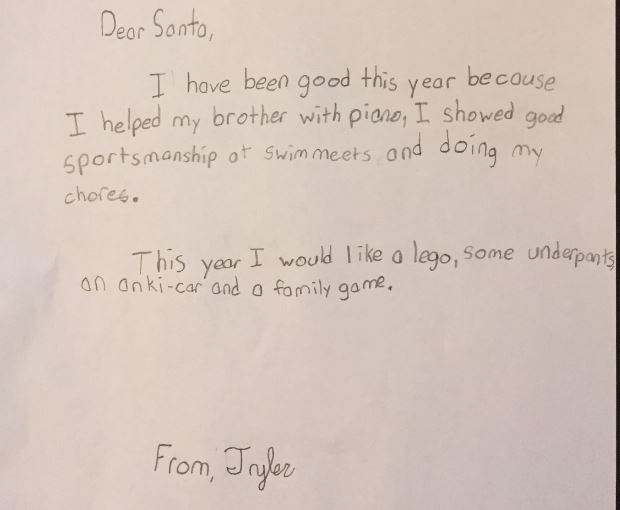 Dear Santa,
I have been good this year because
I helped my brother with piano, I showed good
sportsmanship at swim meets and doing my
chores.
This year I would like a lego, some underpants,
an anki-car and a family game.
From, Tyler